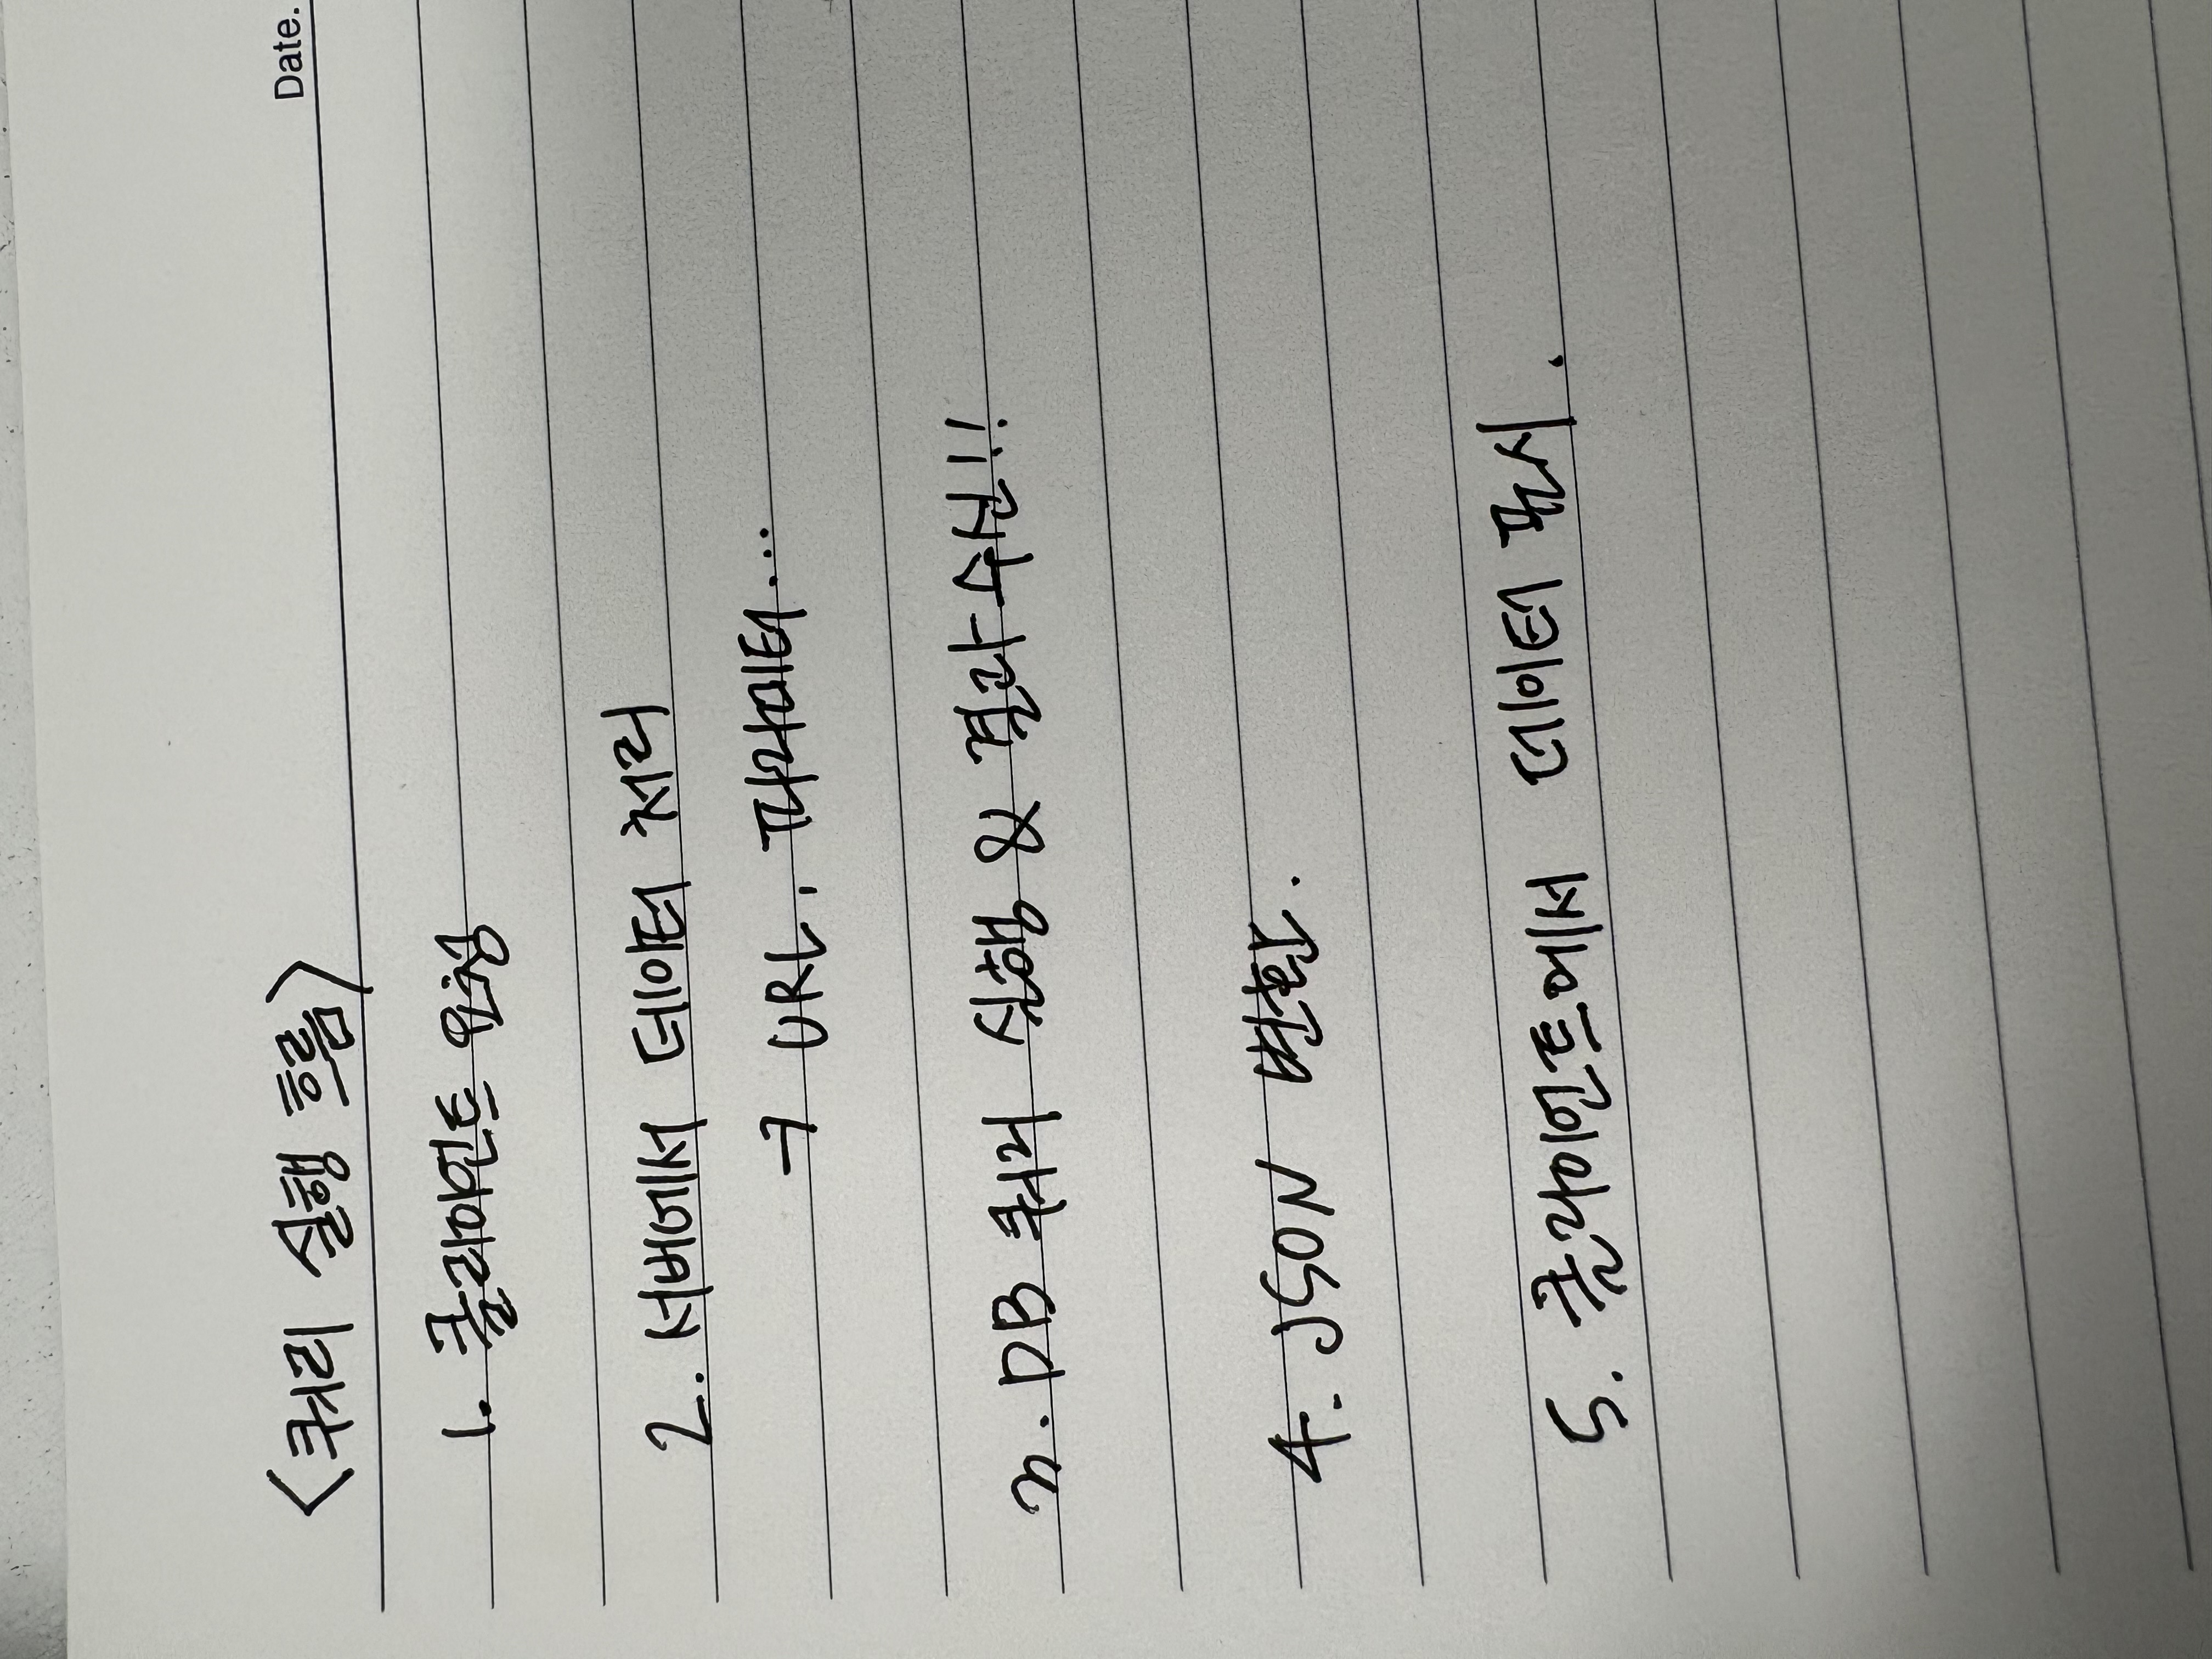 <쿼리 실행 흐름>
Date.
1. 클라이언트 요청
2. 서버에서 데이터 처리
→ URL, 파라미터...
3. DB 쿼리 실행 & 결과 수신!!
4. JSON 변환.
5. 클라이언트에서 데이터 표시.